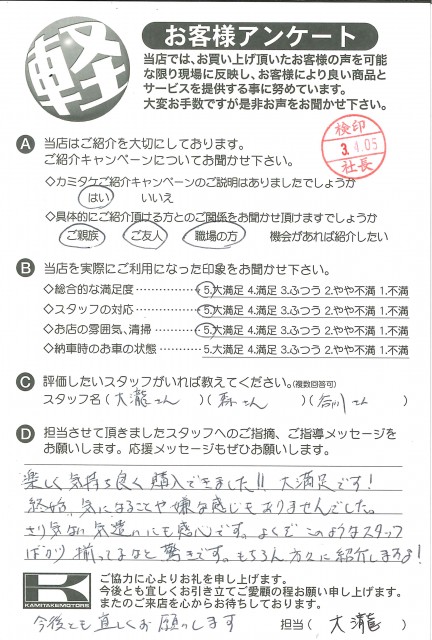 軽
お客様アンケート
当店では、お買い上げ頂いたお客様の声を可能
な限り現場に反映し、お客様により良い商品と
サービスを提供する事に努めています。
大変お手数ですが是非お声をお聞かせ下さい。
検印
3.4.05
社長
A 当店はご紹介を大切にしております。
ご紹介キャンペーンについてお聞かせ下さい。
◇カミタケご紹介キャンペーンのご説明はありましたでしょうか
はい いいえ
◇具体的にご紹介頂ける方とのご関係をお聞かせ頂けますでしょうか
ご親族 ご友人 職場の方 機会があれば紹介したい
B 当店を実際にご利用になった印象をお聞かせ下さい。
◇総合的な満足度 5.大満足 4.満足 3.ふつう 2.やや不満 1.不満
◇スタッフの対応 5.大満足 4.満足 3.ふつう 2.やや不満 1.不満
◇お店の雰囲気、清掃 5.大満足 4.満足 3.ふつう 2.やや不満 1.不満
◇納車時のお車の状態 5.大満足 4.満足 3.ふつう 2.やや不満 1.不満
C 評価したいスタッフがいれば教えてください。(複数回答可)
スタッフ名(大瀧さん)(森さん)(谷川さん)
D 担当させて頂きましたスタッフへのご指摘、ご指導メッセージを
お願いします。応援メッセージもぜひお願いします。
楽しく気持ち良く購入できました!! 大満足です!
終始、気になることや嫌な感じもありませんでした。
さり気ない気遣いにも感心です。よくぞこのようなスタッフ
ばかり揃ってるなと驚きです。もちろん方々に紹介しまっせ!
K
KAMITAKE MOTORS
ご協力に心よりお礼を申し上げます。
今後とも宜しくお引き立てご愛顧の程お願い申し上げます。
またのご来店を心からお待ちしております。
今後とも宜しくお願いします 担当( 大瀧 )